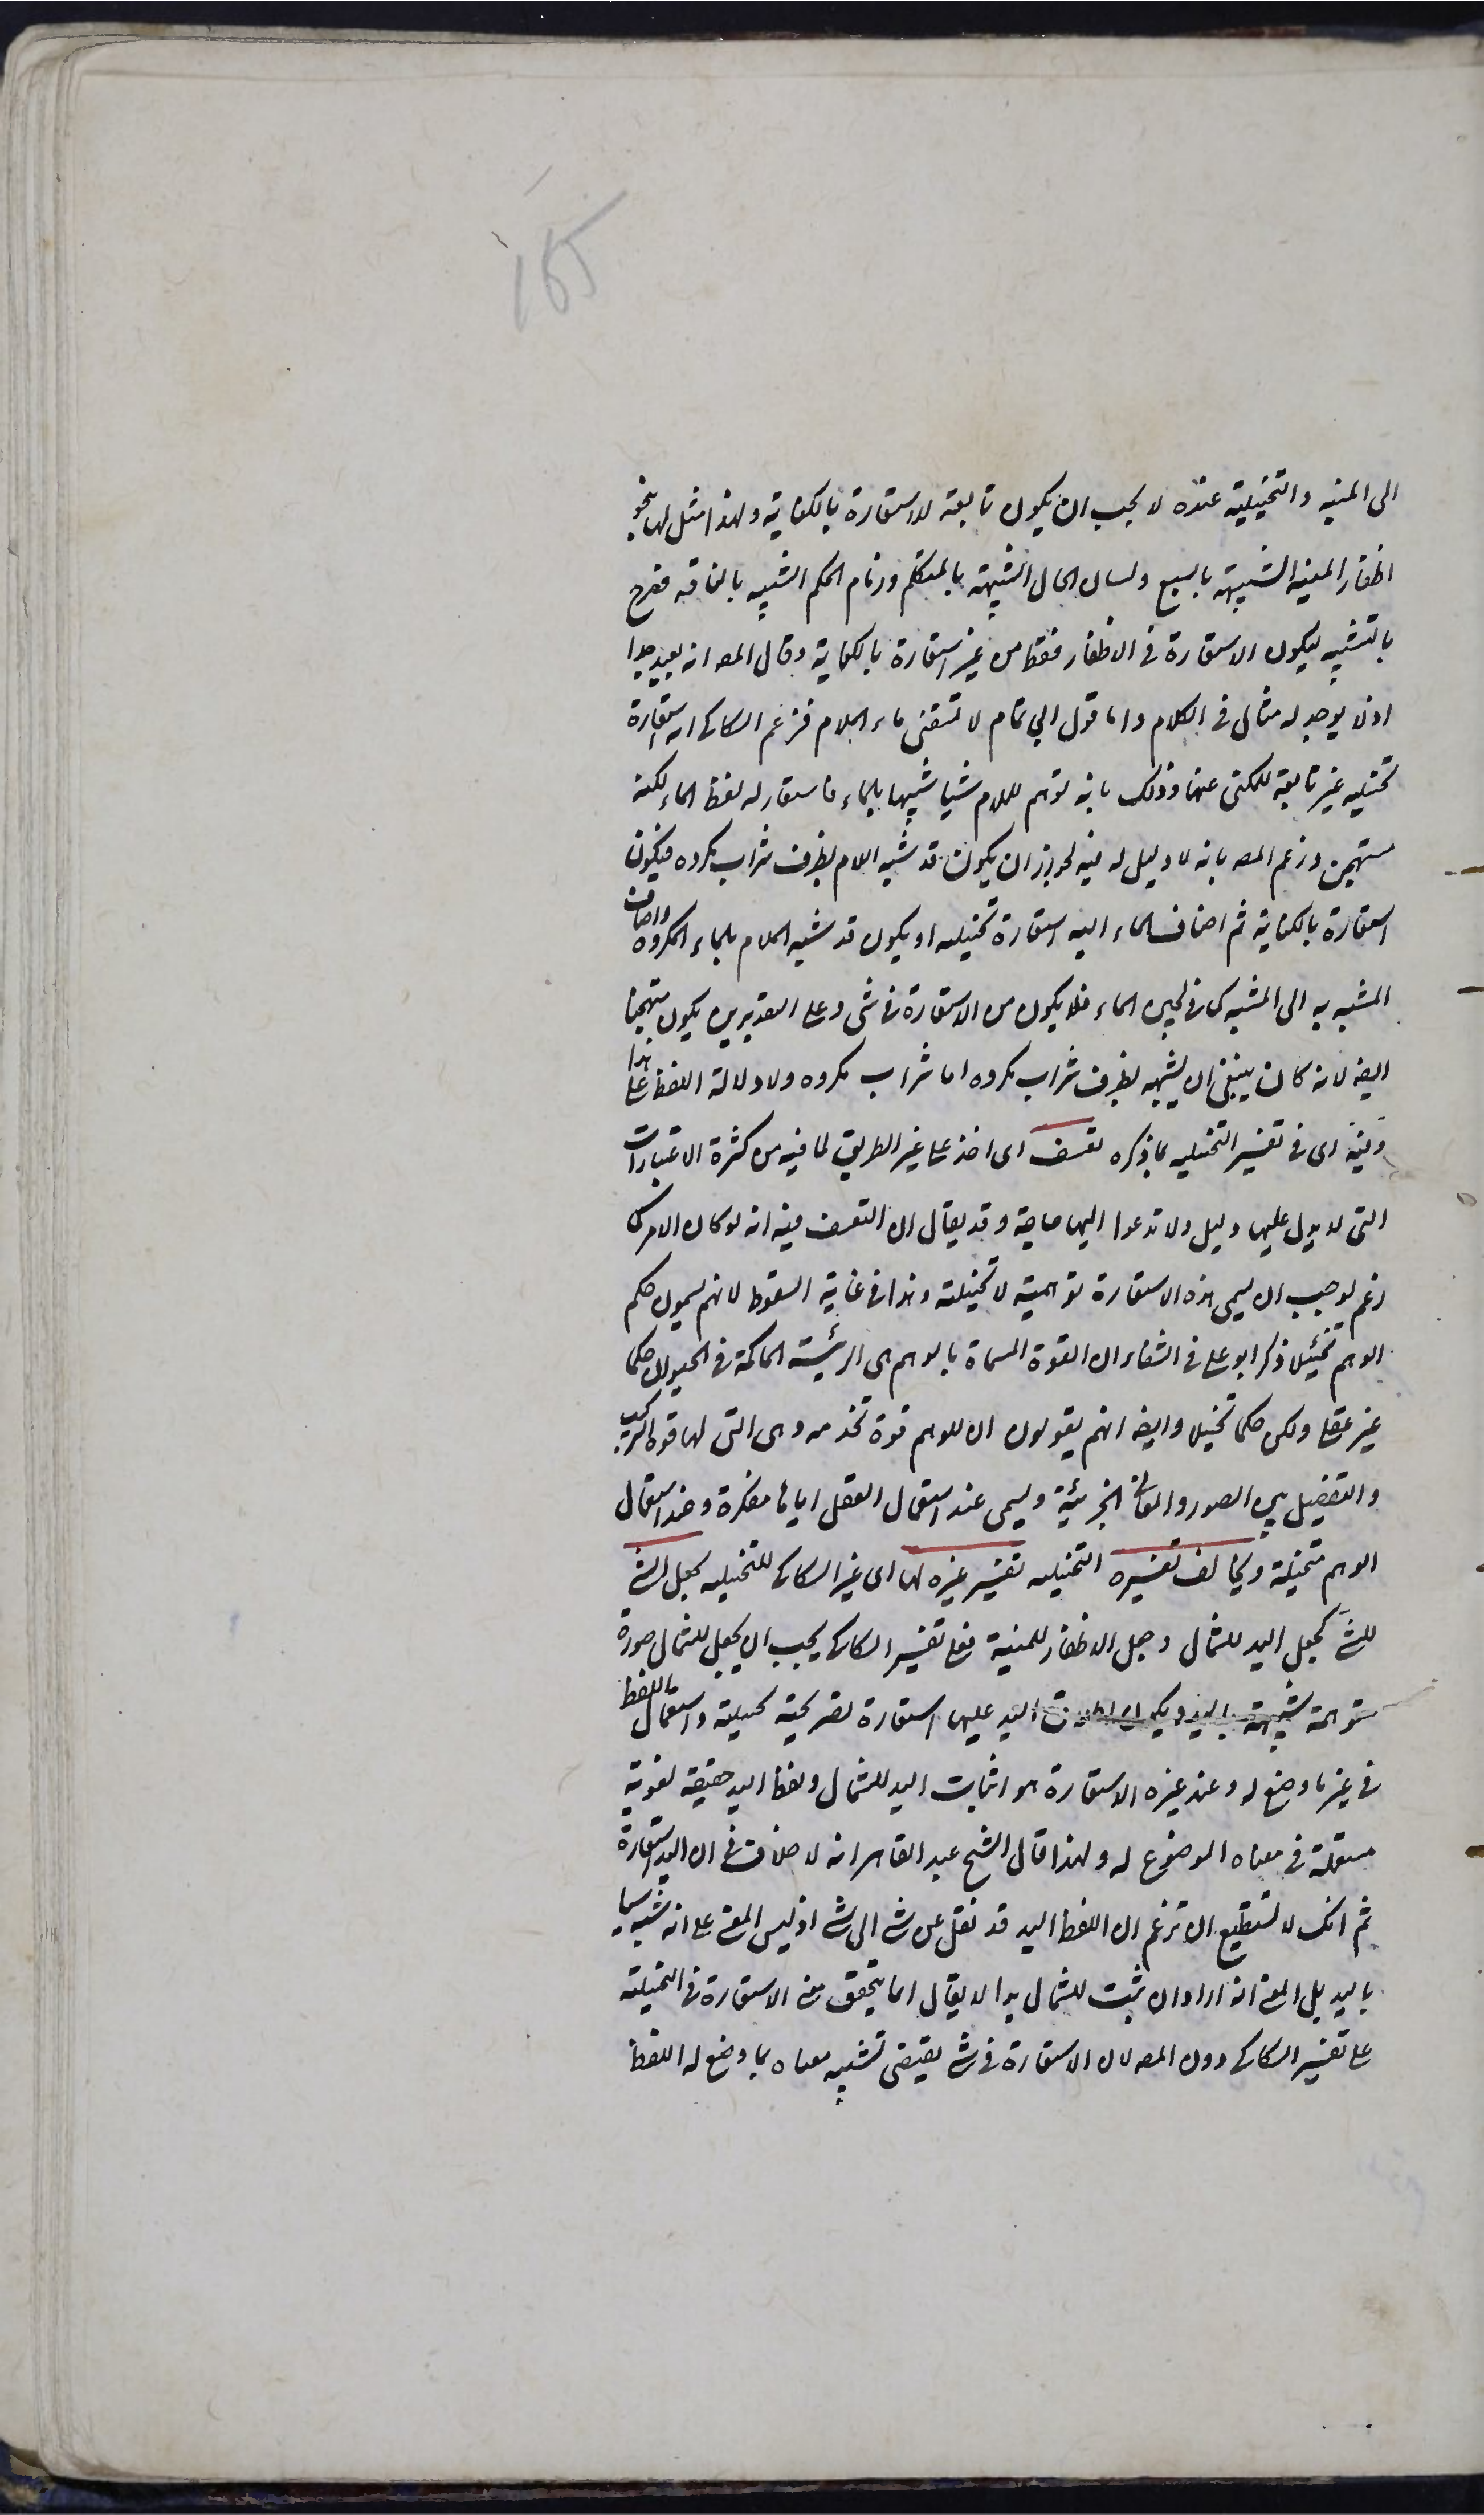 165
الى المنيه والتخييلية عنده لا يجب ان يكون تابعة للاستعارة بالكناية ولهذا مثل لها بنحو
اظفار المنيه الشبيهة بالسبع ولسان الحال الشبيهة بالمتكلم وزمام الحكم الشبيه بالناقه فصرح
بالتشبيه ليكون الاستعارة في الاظفار فقط من غير استعارة بالكناية وقال المصه انه بعيد جدا
اذ لا يوجد له مثال في الكلام واما قول ابي تمام لا تسقنى ماء الملام فزعم السكاكى انه استعارة
تخييليه غير تابعة للمكنى عنها وذلك بانه توهم للملام شيئا شبيها بالماء فاستعار له لفظ الماء لكنه
مستهجن وزعم المصه بانه لا دليل له فيه لجواز ان يكون قد شبه الملام بظرف شراب مكروه فيكون
استعارة بالكناية ثم اضاف الماء اليه استعارة تخييليه او يكون قد شبه الملام بالماء المكروه واضاف
المشبه به الى المشبه كما في لجين الماء فلا يكون من الاستعارة في شى وعلى التقديرين يكون مستهجنا
ايضه لانه كان ينبغى ان يشبهه بظرف شراب مكروه اما شراب مكروه ولا دلالة اللفظ على هذا
وفيه اى في تفسير التخييليه بما ذكره تعسف اى اخذ على غير الطريق لما فيه من كثرة الاعتبارات
التى لا يدل عليها دليل ولا تدعوا اليها حاجة وقد يقال ان التعسف فيه انه لو كان الامر كما
زعم لوجب ان يسمى هذه الاستعارة توهمية لا تخييلته وهذا في غاية السقوط لانهم يسمون حكم
الوهم تخييلا ذكر ابو على في الشفاء ان القوة المسماة بالوهم هى الرئيسة الحاكمة في الحيوان حكما
غير عقلى ولكن حكما تخييلا وايضه انهم يقولون ان للوهم قوة تخدمه وهى التى لها قوة التركيب
والتفصيل بين الصور والمعانى الجزئية ويسمى عند استعمال العقل اياها مفكرة وعند استعمال
الوهم متخيلة ويخالف تفسيره التخييليه تفسير غيره لها اى غير السكاكى للتخييليه بجعل الشئ
للشئ كجعل اليد للشمال وجعل الاظفار للمنية فعلى تفسير السكاكى يجب ان يجعل للشمال صورة
متوهمة شبيهة باليد ويكون اطلاق اليد عليها استعارة تصريحية تخييلية واستعمال اللفظ
في غير ما وضع له وعند غيره الاستعارة هو اثبات اليد للشمال ولفظ اليد حقيقة لغوية
مستعملة في معناه الموضوع له ولهذا قال الشيخ عبد القاهر انه لا خلاف في ان اليد استعارة
ثم انك لا تستطيع ان تزعم ان اللفظ اليد قد نقل عن شئ الى شئ اذ ليس المعنى على انه شبه شيئا
باليد بل المعنى انه اراد ان يثبت للشمال يدا لا يقال انما يتحقق معنى الاستعارة في التخييلته
على تفسير السكاكى دون المصه لان الاستعارة في شئ يقتضى تشبيه معناه بما وضع له اللفظ